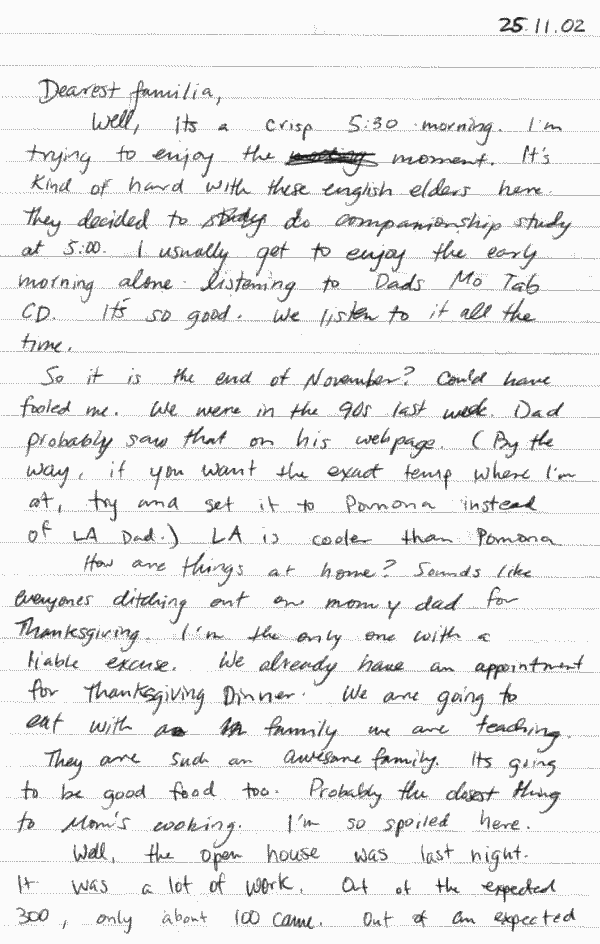 25.11.02
Dearest familia,
Well, its a crisp 5:30 morning. I'm
trying to enjoy the moment. It's
kind of hard with these english elders here.
They decided to study do companionship study
at 5:00. I usually get to enjoy the early
morning alone listening to Dads Mo Tab
CD. It's so good. We listen to it all the
time.
So it is the end of November? Could have
fooled me. We were in the 90s last week. Dad
probably saw that on his webpage. (By the
way, if you want the exact temp where I'm
at, try and set it to Pomona instead
of LA Dad.) LA is cooler than Pomona
How are things at home? Sounds like
everyones ditching out on mom y dad for
Thanksgiving. I'm the only one with a
liable excuse. We already have an appointment
for Thanksgiving Dinner. We are going to
eat with a family we are teaching.
They are such an awesome family. Its going
to be good food too. Probably the closest thing
to Mom's cooking. I'm so spoiled here.
Well, the open house was last night.
It was a lot of work. Out of the expected
300, only about 100 came. Out of an expected